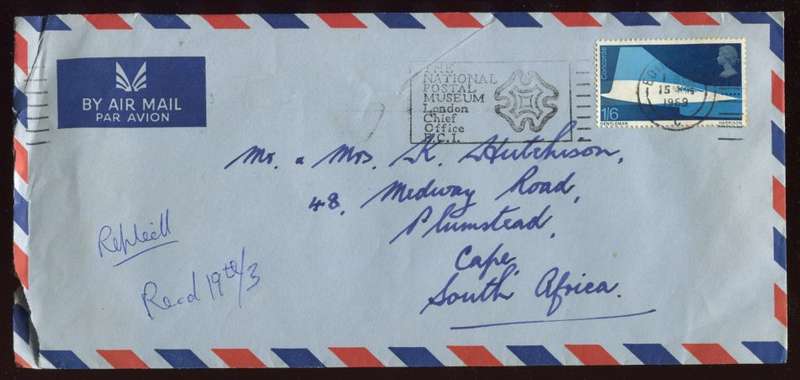 BY AIR MAIL
PAR AVION
THE
NATIONAL
POSTAL
MUSEUM
London
Chief
Office
E.C.1.
Concorde
1/6
GENTLEMAN
HARRISON
1969
Mr. & Mrs. K. Hutchison,
48, Medway Road,
Plumstead,
Cape,
South Africa.
Replied
Recd 19th/3